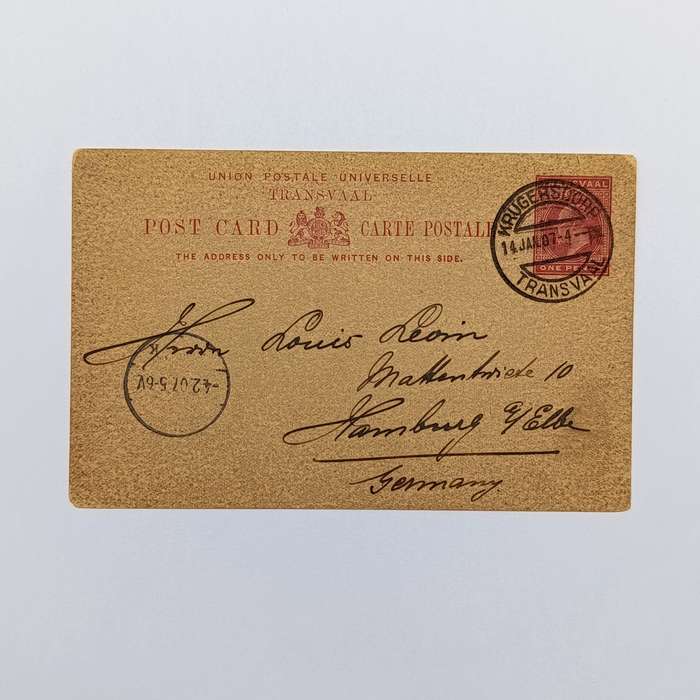 UNION POSTALE UNIVERSELLE
TRANSVAAL
POST CARD CARTE POSTALE
THE ADDRESS ONLY TO BE WRITTEN ON THIS SIDE.
TRANSVAAL
ONE PENNY
KRUGERSDORP
14 JAN.07-4-
TRANSVAAL
Herrn Louis Levin
Mattentwiete 10
Hamburg a/Elbe
Germany.
-4.2.07.5-6V